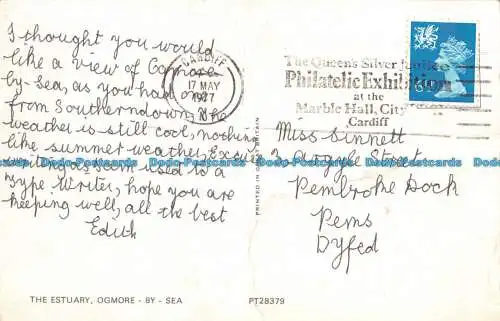 I thought you would
like a view of Ogmore-
by-Sea, as you had one
from Southerndown. The
weather is still cool, nothing
like summer weather, Excuse
writing as I am used to a
Type Writer, hope you are
keeping well, all the best
Edith
THE ESTUARY, OGMORE - BY - SEA
PT28379
CARDIFF
17 MAY
1977
The Queen's Silver Jubilee
Philatelic Exhibition
at the
Marble Hall, City
Cardiff
Miss Sinnett
Argyle Street
Pembroke Dock
Pems
Dyfed
Dodo-Postcards Dodo-Postcards Dodo-Postcards Dodo-Postcards